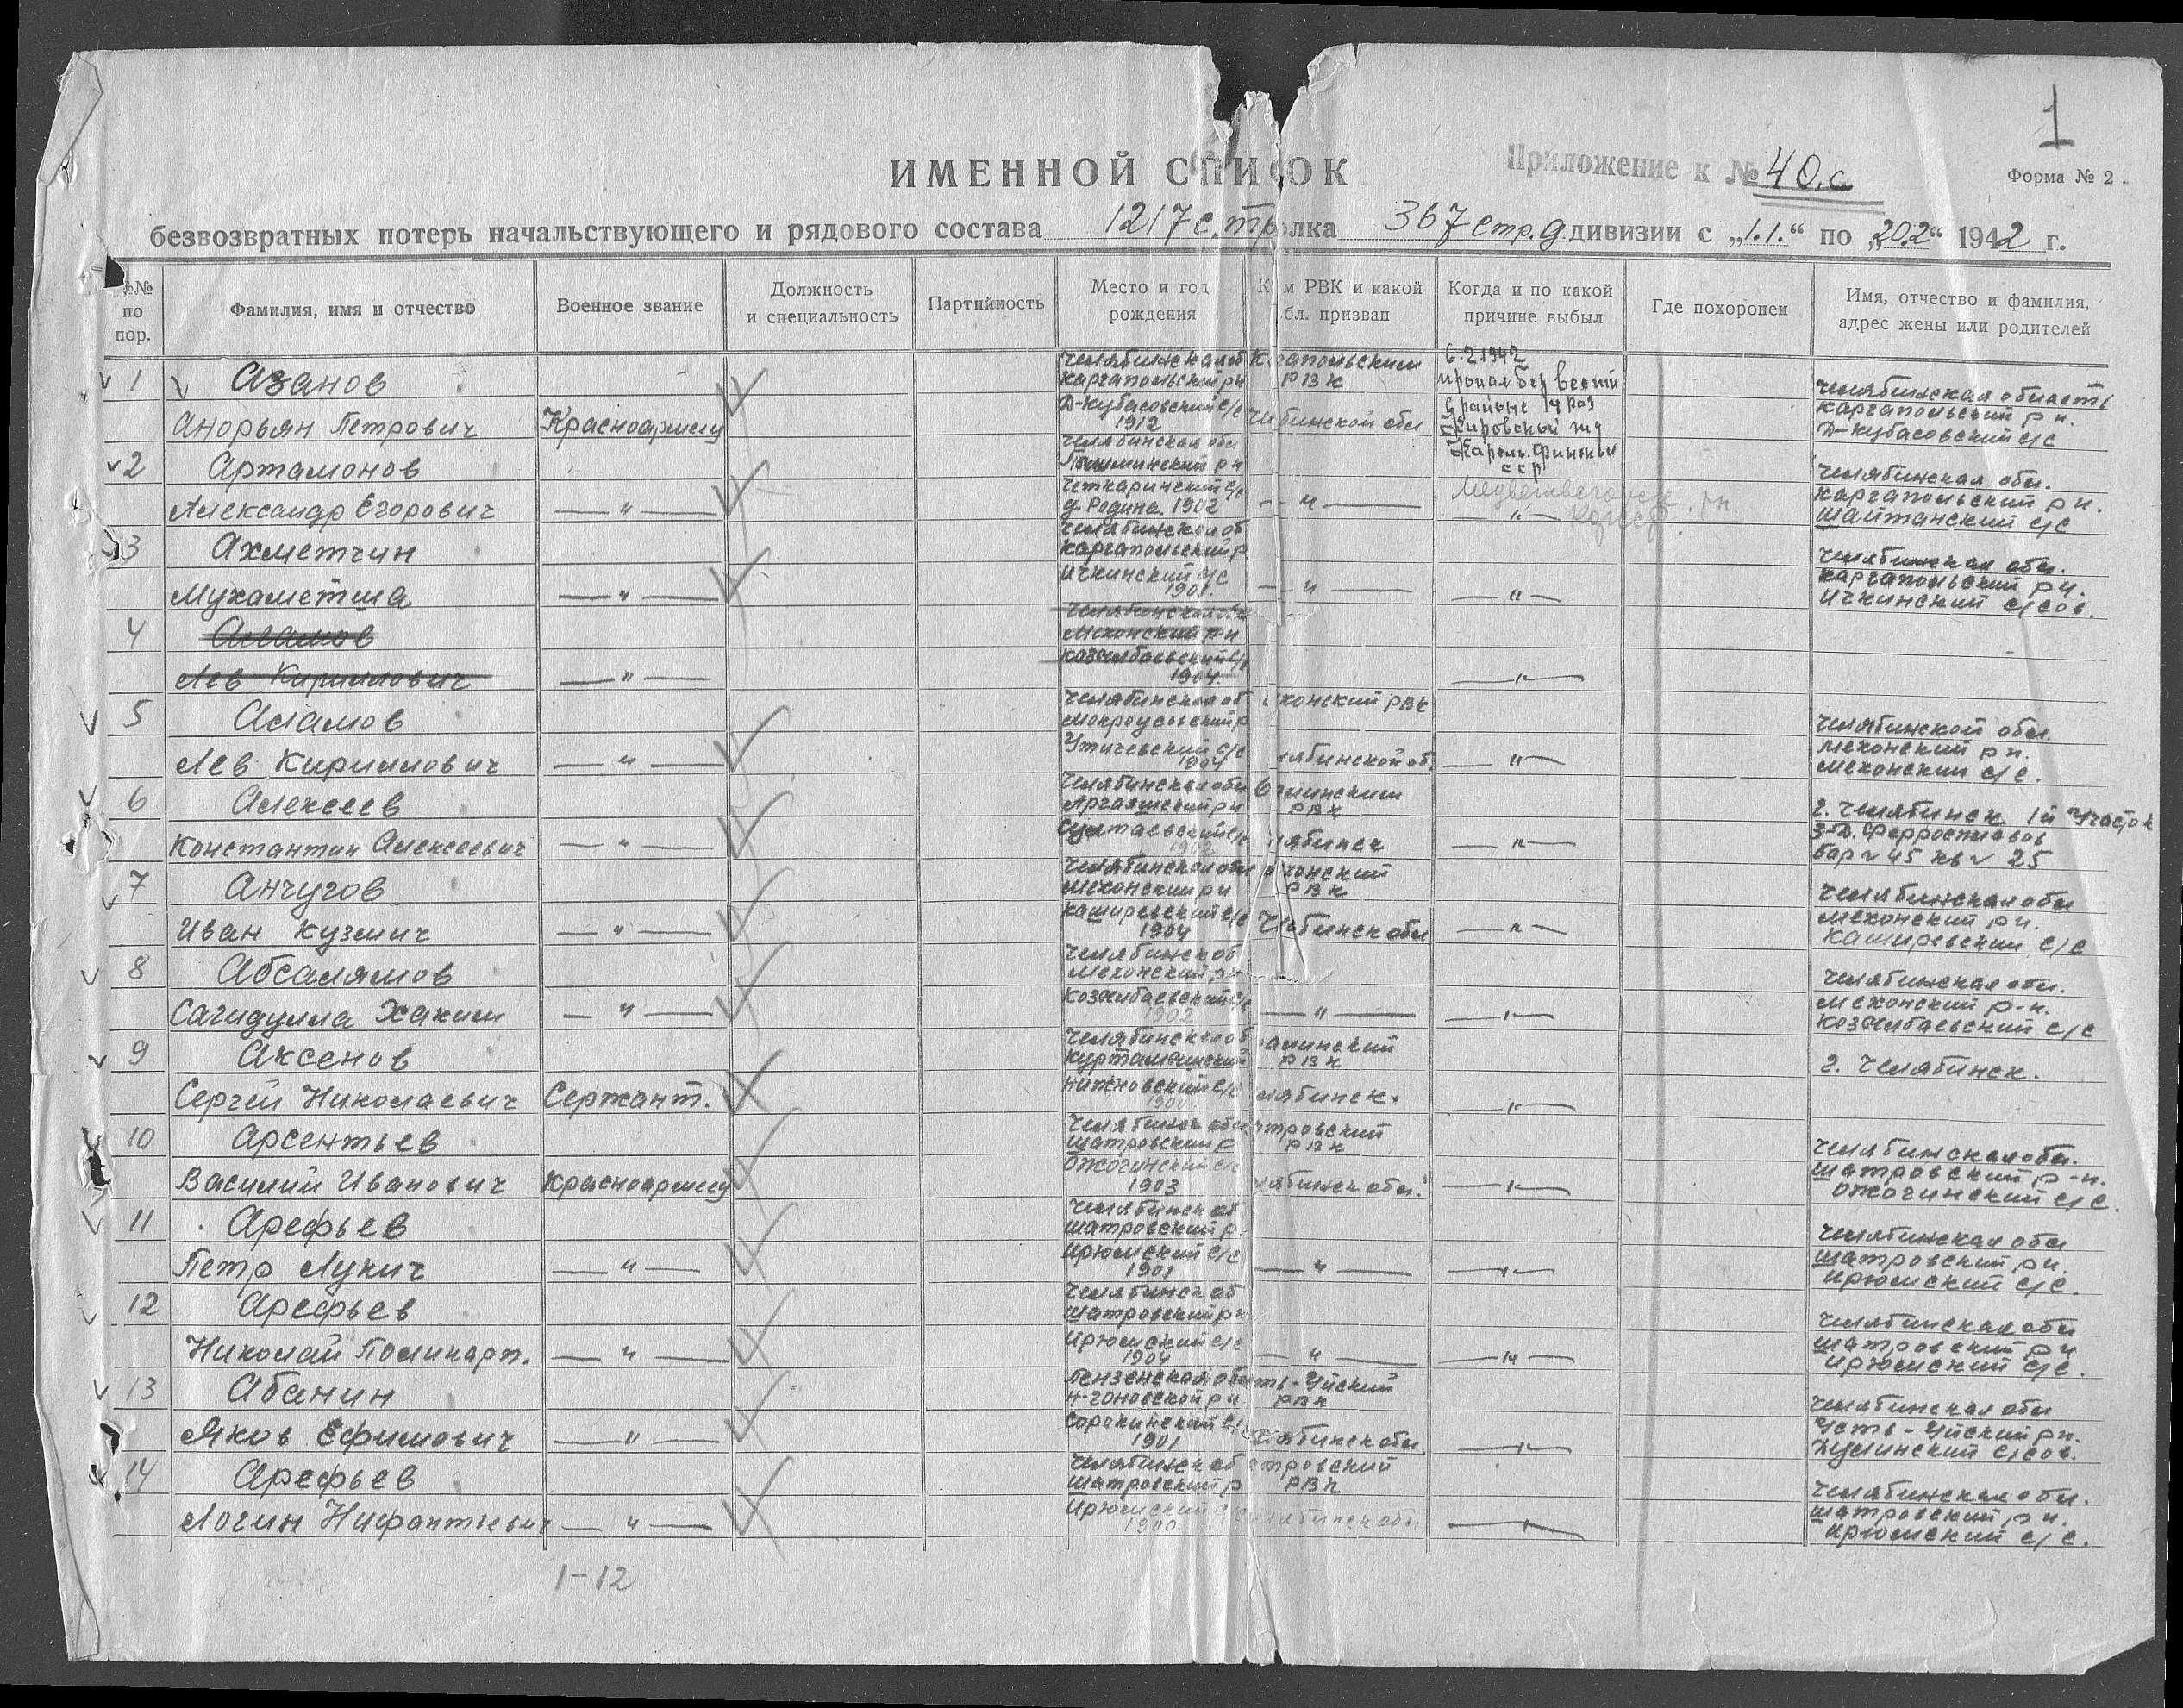 1
ИМЕННОЙ СПИСОК
Приложение к № 40.с
Форма № 2.
безвозвратных потерь начальствующего и рядового состава 1217 с.тр полка 367 стр.д дивизии с „1.1.“ по „20.2“ 1942 г.
№№ по пор.
Фамилия, имя и отчество
Военное звание
Должность и специальность
Партийность
Место и год рождения
К м РВК и какой бл. призван
Когда и по какой причине выбыл
Где похоронен
Имя, отчество и фамилия, адрес жены или родителей
1 Азанов
Анорьян Петрович
Красноармеец
Челябинская об
Каргапольский рн
Д-Кубасовский с/с
1912
Каргапольским
РВК
Челябинской обл
6.2.1942
пропал без вести
в районе 14 раз
Кировской жд
Карело.Финской
ССР
Челябинская область
Каргапольский рн.
Д-Кубасовский с/с
2 Артамонов
Александр Егорович
— " —
Челябинская обл
Четкаринский с/с
д. Родина. 1902
— " —
— " —
Челябинская обл.
Каргапольский рн.
Шайтанский с/с
3 Ахметчин
Мухаметша
— " —
Челябинской об
Каргапольский р
Ичкинский с/с
1901.
— " —
— " —
Челябинская обл.
Каргапольский рн.
Ичкинский с/сов.
4 Асламов
Лев Кириллович
— " —
Мехонский р-н
Козылбаевский с/с
1904.
— " —
5 Асламов
Лев Кириллович
— " —
Челябинская об
Мокроусовский р
Утичевский с/с
1904
хонский РВК
лябинской об.
— " —
Челябинской обл.
Мехонский рн.
Мехонский с/с.
6 Алексеев
Константин Алексеевич
— " —
Челябинская обл
Аргаяшский рн
1902
РВК
лябинск
— " —
г. Челябинск 1й Участок
З-д. Ферросплавов
бар № 45 кв № 25
7 Анчугов
Иван Кузмич
— " —
Челябинской обл
Мехонский рн
Каширевский с/с
1904
хонский
РВК
Челябинск обл.
— " —
Челябинская обл
Мехонский рн.
Каширевский с/с
8 Абсалямов
Сагидулла Хаким
— " —
Челябинск об
Мехонский рн
Козылбаевский с/с
1902
— " —
— " —
Челябинская обл.
Мехонский р-н.
Козылбаевский с/с
9 Аксенов
Сергей Николаевич
Сержант.
Челябинской об
Куртамышский
Нижновский с/с
1900
алинский
РВК
лябинск.
— " —
г. Челябинск.
10 Арсентьев
Василий Иванович
Красноармеец
Челябинск обл
Шатровский р
Ожогинский с/с
1903
тровский
РВК
лябинск обл.
— " —
Челябинская обл.
Шатровский р-н.
Ожогинский с/с.
11 Арефьев
Петр Лукич
— " —
Челябинск об
Шатровский р.
Ирюмский с/с
1901
— " —
— " —
Челябинская обл
Шатровский рн.
Ирюмский с/с.
12 Арефьев
Николай Поликарп.
— " —
Челябинск об
Шатровский рн
Ирюмский с/с
1904
— " —
— " —
Челябинская обл
Шатровский рн
Ирюмский с/с.
13 Абанин
Яков Ефимович
— " —
Пензенская обл
Сорокинский с/с
1901
ть-Уйский
РВК
Челябинск обл.
— " —
Челябинская обл
Усть-Уйский рн.
14 Арефьев
Логин Нифантьевич
— " —
Челябинск об
Шатровский р
Ирюмский с/с
1900
тровский
РВК
Челябинск обл
— " —
Челябинская обл.
Шатровский рн.
Ирюмский с/с.
1-12